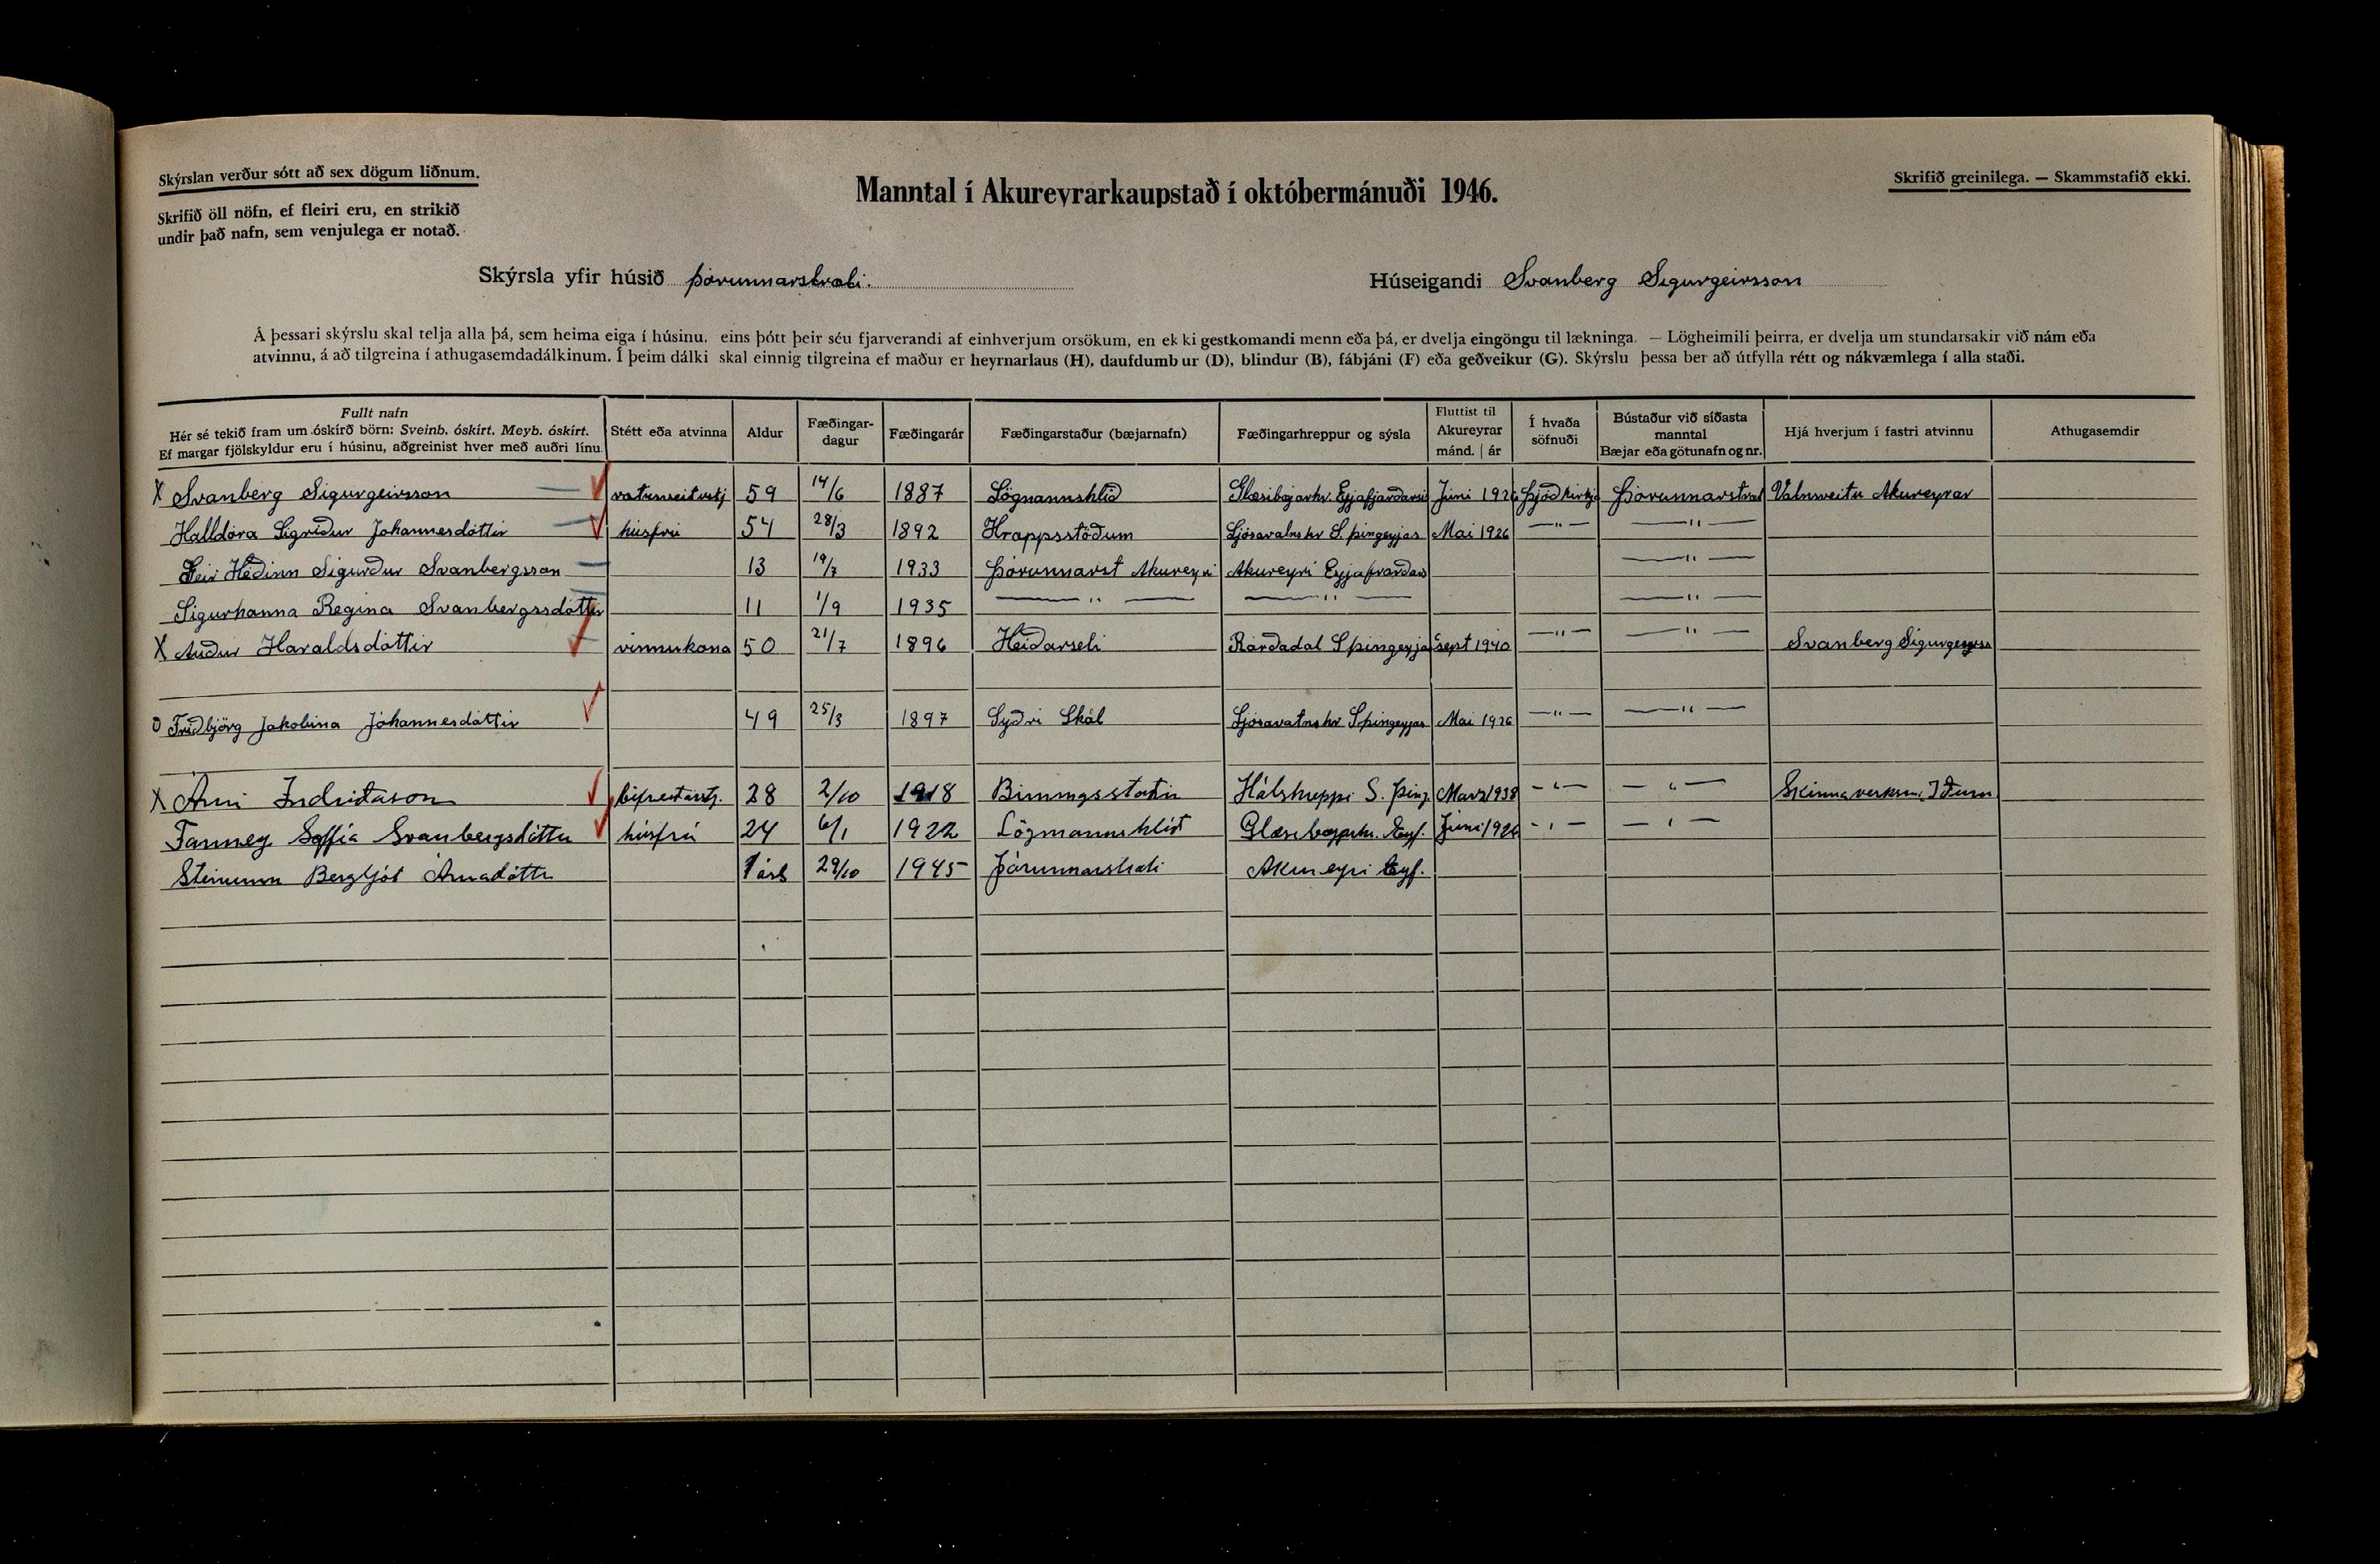 Skýrslan verður sótt að sex dögum liðnum.
Skrifið öll nöfn, ef fleiri eru, en strikið
undir það nafn, sem venjulega er notað.
Manntal í Akureyrarkaupstað í októbermánuði 1946.
Skrifið greinilega. — Skammstafið ekki.
Skýrsla yfir húsið Þórunnarstræti.
Húseigandi Svanberg Sigurgeirsson
Á þessari skýrslu skal telja alla þá, sem heima eiga í húsinu. eins þótt þeir séu fjarverandi af einhverjum orsökum, en ek ki gestkomandi menn eða þá, er dvelja eingöngu til lækninga. — Lögheimili þeirra, er dvelja um stundarsakir við nám eða
atvinnu, á að tilgreina í athugasemdadálkinum. Í þeim dálki skal einnig tilgreina ef maður er heyrnarlaus (H), daufdumb ur (D), blindur (B), fábjáni (F) eða geðveikur (G). Skýrslu þessa ber að útfylla rétt og nákvæmlega í alla staði.
Fullt nafn
Hér sé tekið fram um óskírð börn: Sveinb. óskírt. Meyb. óskírt.
Ef margar fjölskyldur eru í húsinu, aðgreinist hver með auðri línu.
Stétt eða atvinna
Aldur
Fæðingar-
dagur
Fæðingarár
Fæðingarstaður (bæjarnafn)
Fæðingarhreppur og sýsla
Fluttist til
Akureyrar
mánd. | ár
Í hvaða
söfnuði
Bústaður við síðasta
manntal
Bæjar eða götunafn og nr.
Hjá hverjum í fastri atvinnu
Athugasemdir
X Svanberg Sigurgeirsson 59 14/6 1887 Lögmannshlíð Glæsibæjarhr. Eyjafjarðars Júni 1926 Þjóðkirkj Þórunnarstræt Vatnsveitu Akureyrar
Halldóra Sigríður Jóhannesdóttir húsfrú 54 28/3 1892 Hrappsstöðum Ljósavatnshr S. Þingeyjas Mai 1926 —"— —"—
Geir Héðinn Sigurður Svanbergsson 13 19/7 1933 Þórunnarst Akureyri Akureyri —"—
Sigurhanna Regina Svanbergssdóttir 11 1/9 1935 —"— —"— —"—
X Auður Haraldsdóttir vinnukona 50 21/7 1896 Heiðarseli S Þingeyja Sept 1940 —"— —"— Svanberg
o Friðbjörg Jakobina Jóhannesdóttir 49 25/3 1897 Syðri Skál Ljósavatnshr S Þingeyjas Mai 1926 —"— —"—
X Árni Indriðason 28 2/10 1918 Hálshreppi S. Þing. Mars 1938 —"— —"— Iðunn
Fanney Soffía Svanbergsdóttir húsfrú 24 6/1 1922 Lögmannshlíð Glæsibæjarhr. Eyf. Júni 1926 —"— —"—
Steinunn Bergljót Árnadóttir 1 árs 29/10 1945 Þórunnarstræti Akureyri Eyf.